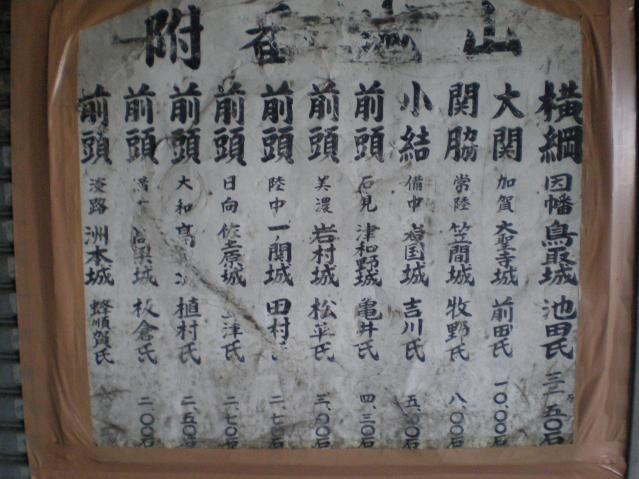 山城番附
横綱 因幡 鳥取城 池田氏
大関 加賀 大聖寺城 前田氏 一〇、〇〇石
関脇 常陸 笠間城 牧野氏 八、〇〇石
小結 備中 岩国城 吉川氏
前頭 石見 津和野城 亀井氏 四、三〇石
前頭 美濃 岩村城 松平氏 三、〇〇石
前頭 陸中 一ノ関城 田村氏
前頭 日向 佐土原城 津氏 二、七〇石
前頭 大和 植村氏 二、五〇石
前頭 城 板倉氏 二、〇〇石
前頭 淡路 洲本城 蜂順賀氏